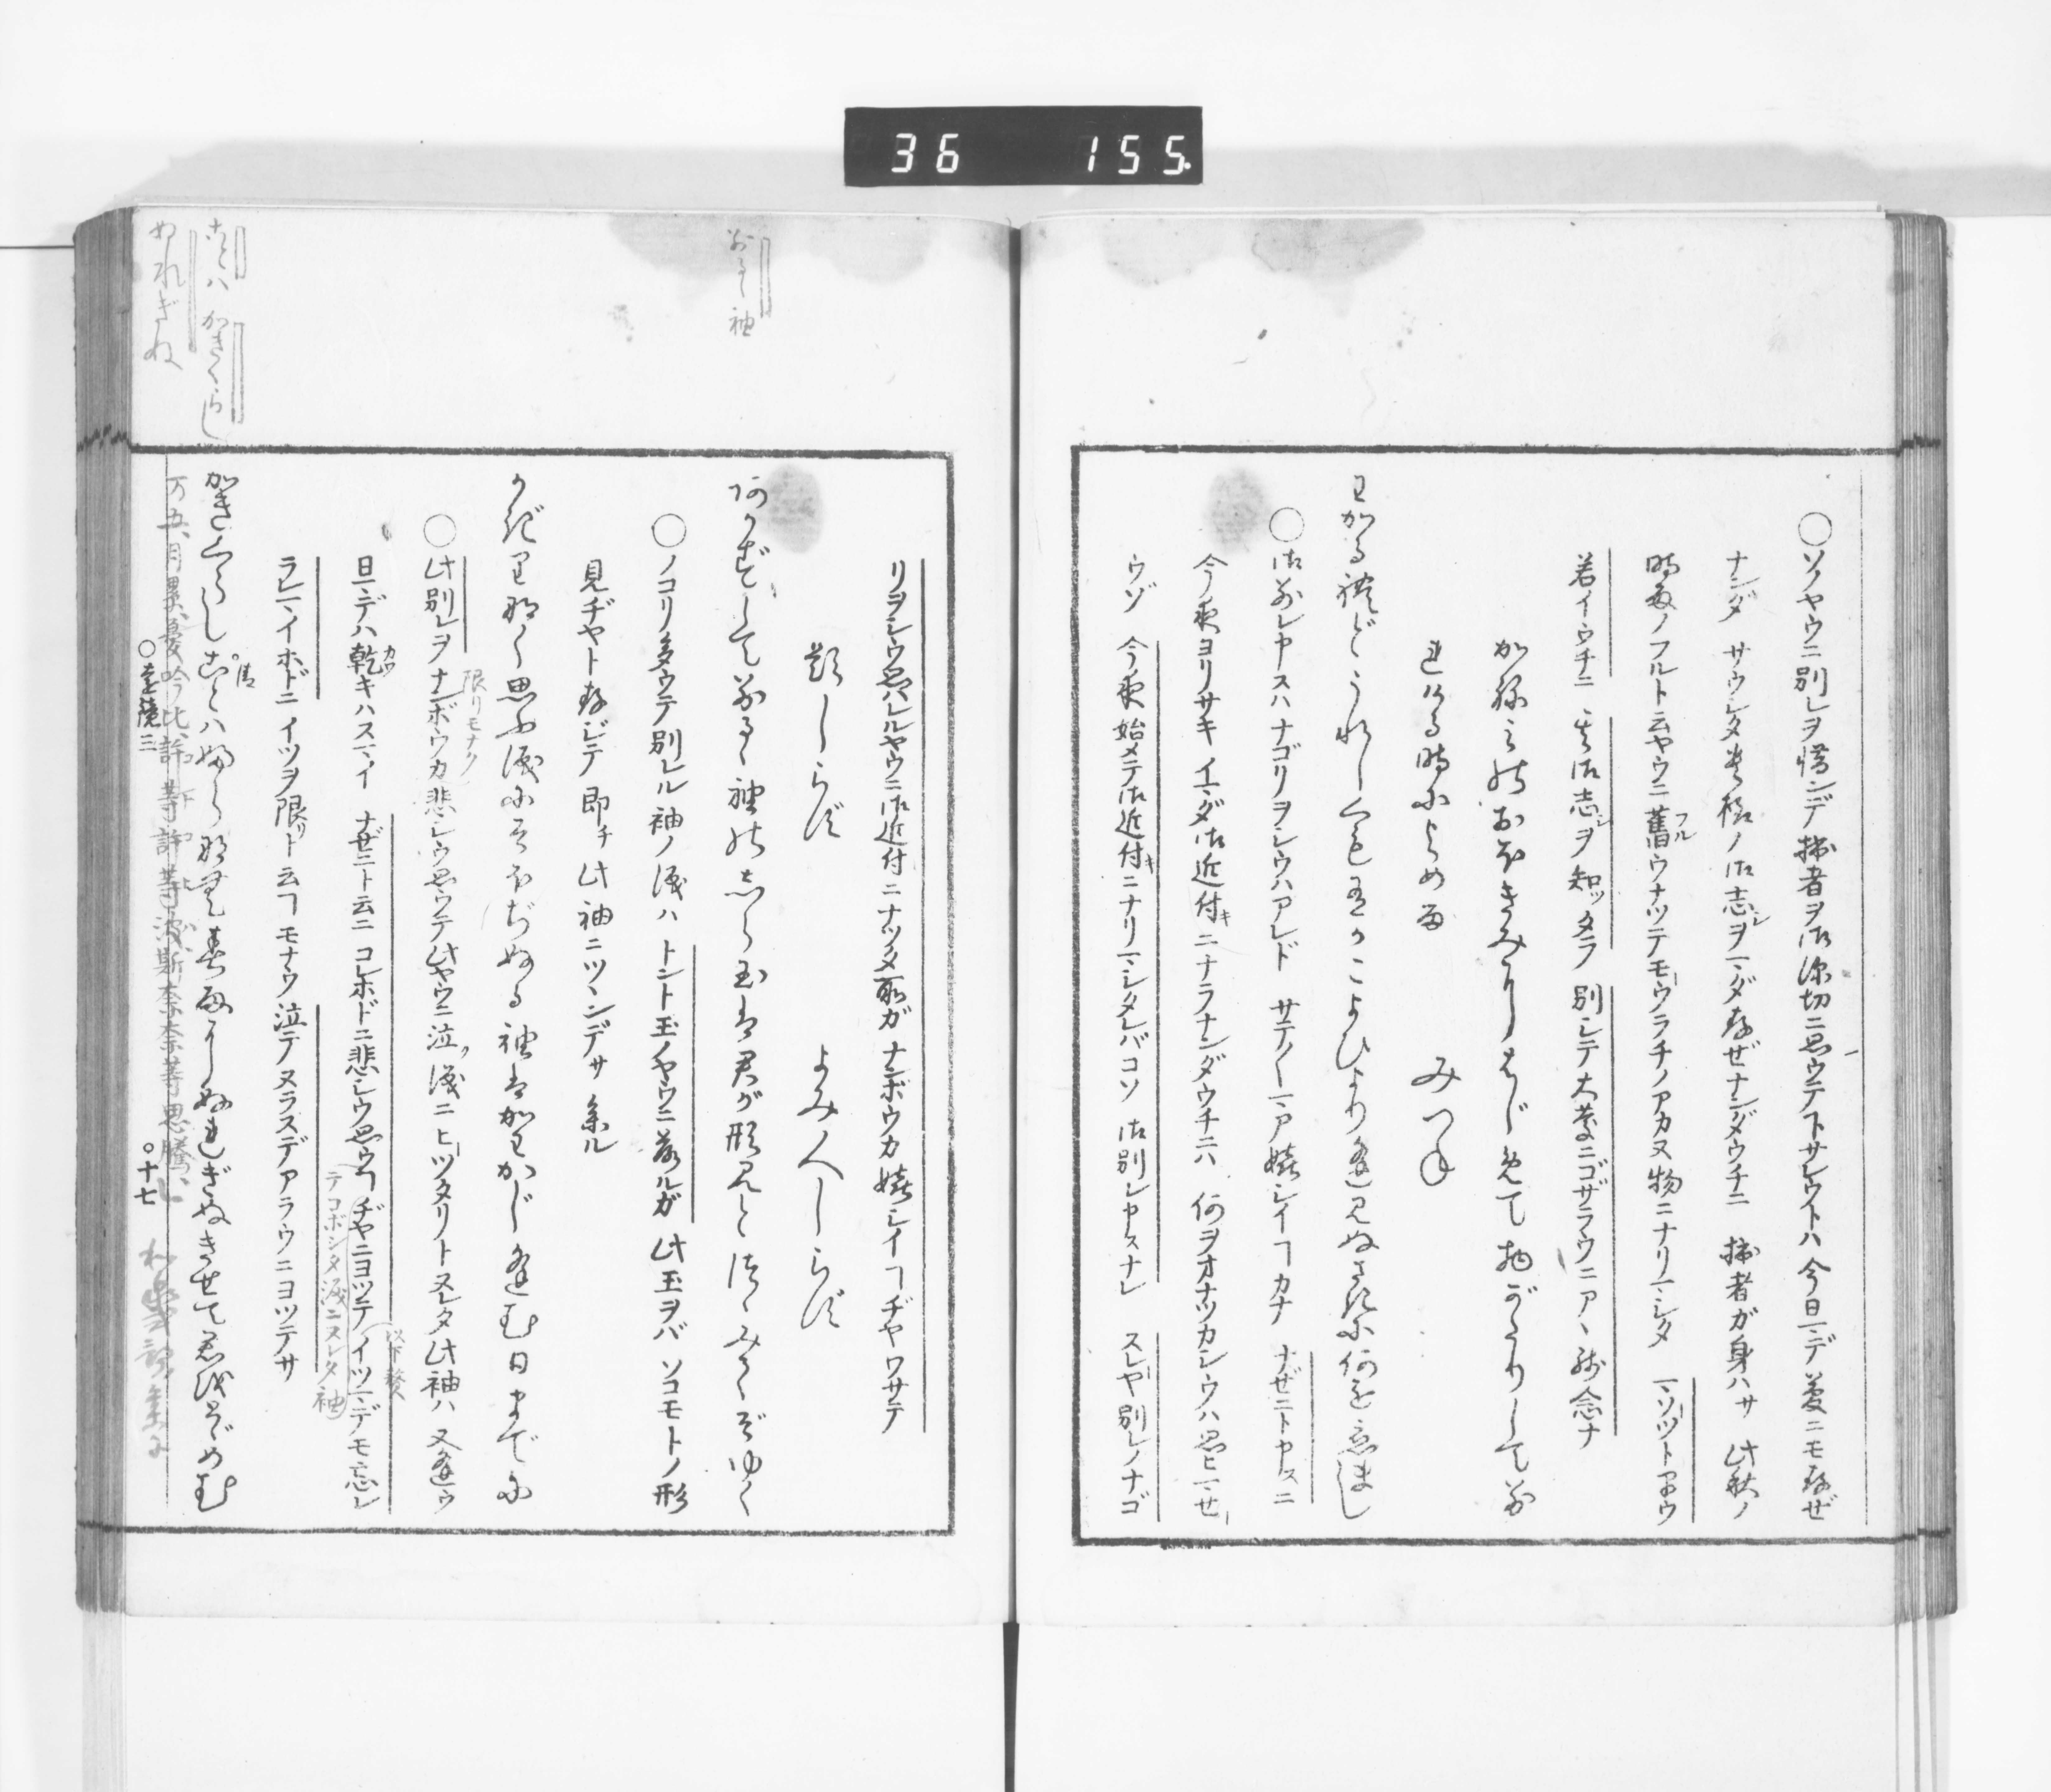 36 155
○ソノヤウニ別レヲ惜ンデ拙者ヲ御深切ニ思ウテ下サレウトハ 今日マデ夢ニモ存ゼ
ナンダ サウシタ貴様ノ御志シヲマダ存ゼナンダウチニ 拙者ガ身ハサ 此秋ノ
時雨ノフルト云ヤウニ舊フルウナツテモウラチノアカヌ物ニナリマシタ マソツトワカウ
若イウチニ 其御志シヲ知ツタラ 別シテ大慶ニゴザラウニ アヽ残念ナ
かねみのおほきみにはじめて物がたりして別
れける時によめる みつね
わかるれどうれしくもあるかこよひより逢見ぬさきに何を恋まし
○御別レヤスハナゴリヲシウハアレド サテ〳〵マア嬉シイヿカナ ナゼニトヤスニ
今夜ヨリサキ イマダ御近付キニナラナンダウチニハ 何ヲオナツカシウハ思ヒマセ
ウゾ 今夜始メテ御近付キニナリマシタレバコソ 御別レヤスナレ スレヤ別レノナゴ
リヲシウ思ハルヤウニ御近付ニナツタ所ガ ナンボウカ嬉シイヿヂヤワサテ
題しらず よみ人しらず
あかずして別るゝ袖のしら玉は君が形見とつゝみてぞゆく
○ノコリ多ウテ別レル袖ノ涙ハ トント玉ノヤウニ落ルガ 此玉ヲバ ソコモトノ形
見ヂヤト存ジテ 即チ此袖ニツヽンデサ 参ル
かぎりなく思ふ涙にそほぢぬる袖はかわかじ逢む日までに
○此別レヲ ナンボウカ悲シウ思ウテ此ヤウニ泣ク涙ニ ヒツタリトヌレタ此袖ハ 又逢ウ
限リモナク
旦マデハ乾カワキハスマイ ナゼニト云ニ コレホドニ悲シウ思ウヿヂヤニヨツテ イツマデモ忘レ
テコボシタ涙ニヌレタ袖
以下贅
ラレマイホドニ イツヲ限リト云ヿモナウ 泣テヌラスデアラウニヨツテサ
かきくらしことはふらなむ春雨にぬれぎぬきせて君をとゞめむ
○遠鏡三 ○十七
別るゝ袖
ことは かきくらし
ぬれぎぬ